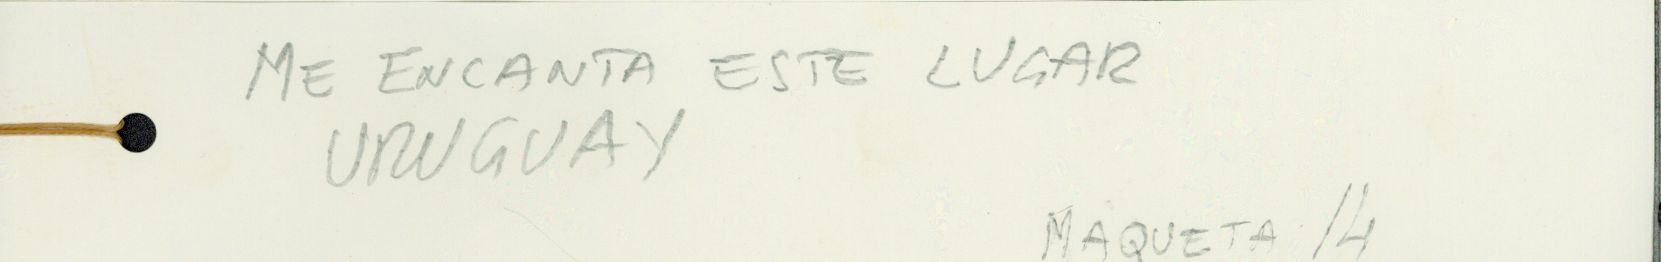 ME ENCANTA ESTE LUGAR
URUGUAY
MAQUETA /4